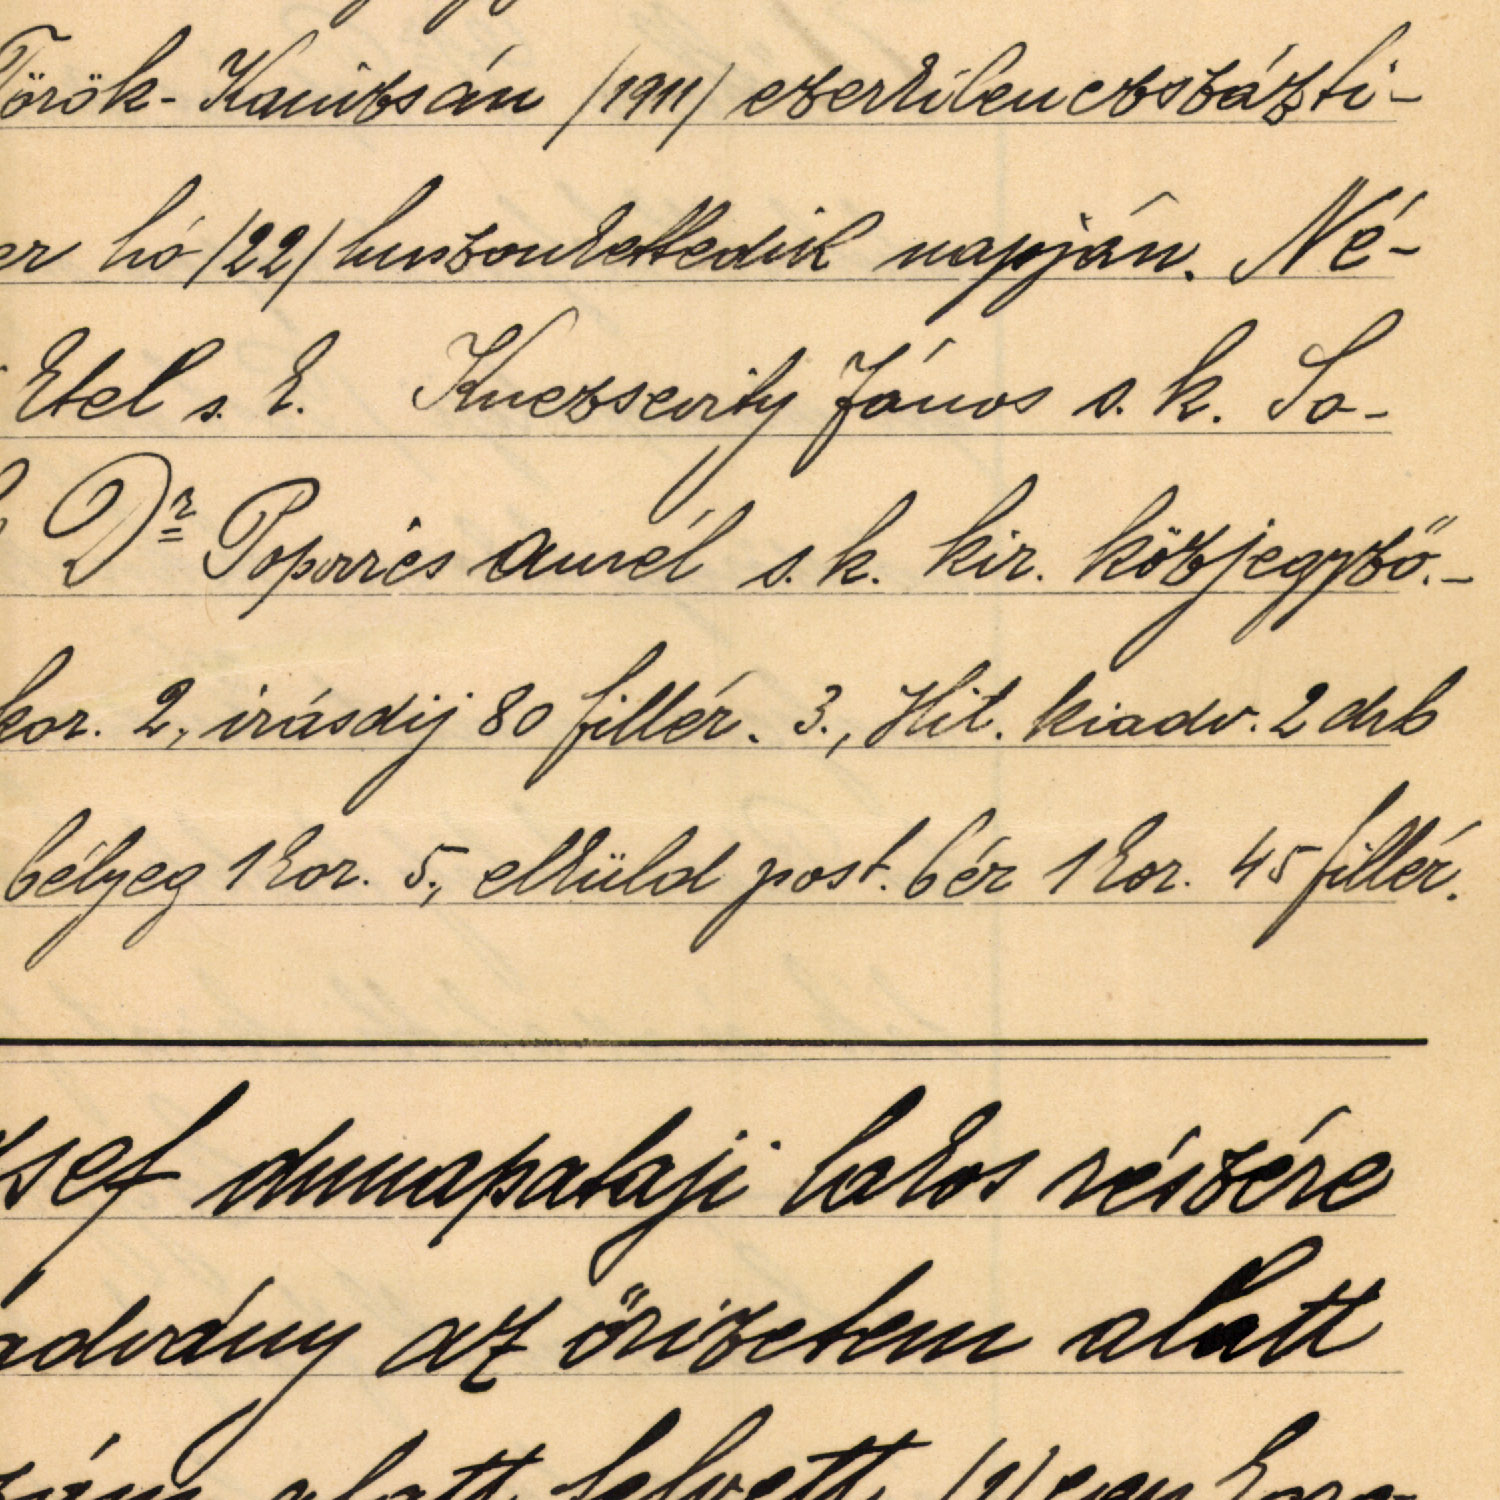 Török-Kanizsán /1911/ ezerkilenczszázti-
er hó /22/ huszonkettedik napján. Né-
Etel s. k. Knezsevity János s. k. So-
Dr Popovics Aurél s. k. kir. közjegyző.-
kor. 2., irásdij 80 fillér. 3., Hit. kiadv. 2 drb
bélyeg 1 kor. 5., elküld post. bér 1 kor. 45 fillér.
zsef dunapataji lakos részére
advány az őrizetem alatt
szám alatt felvett, /1/ egy koro-